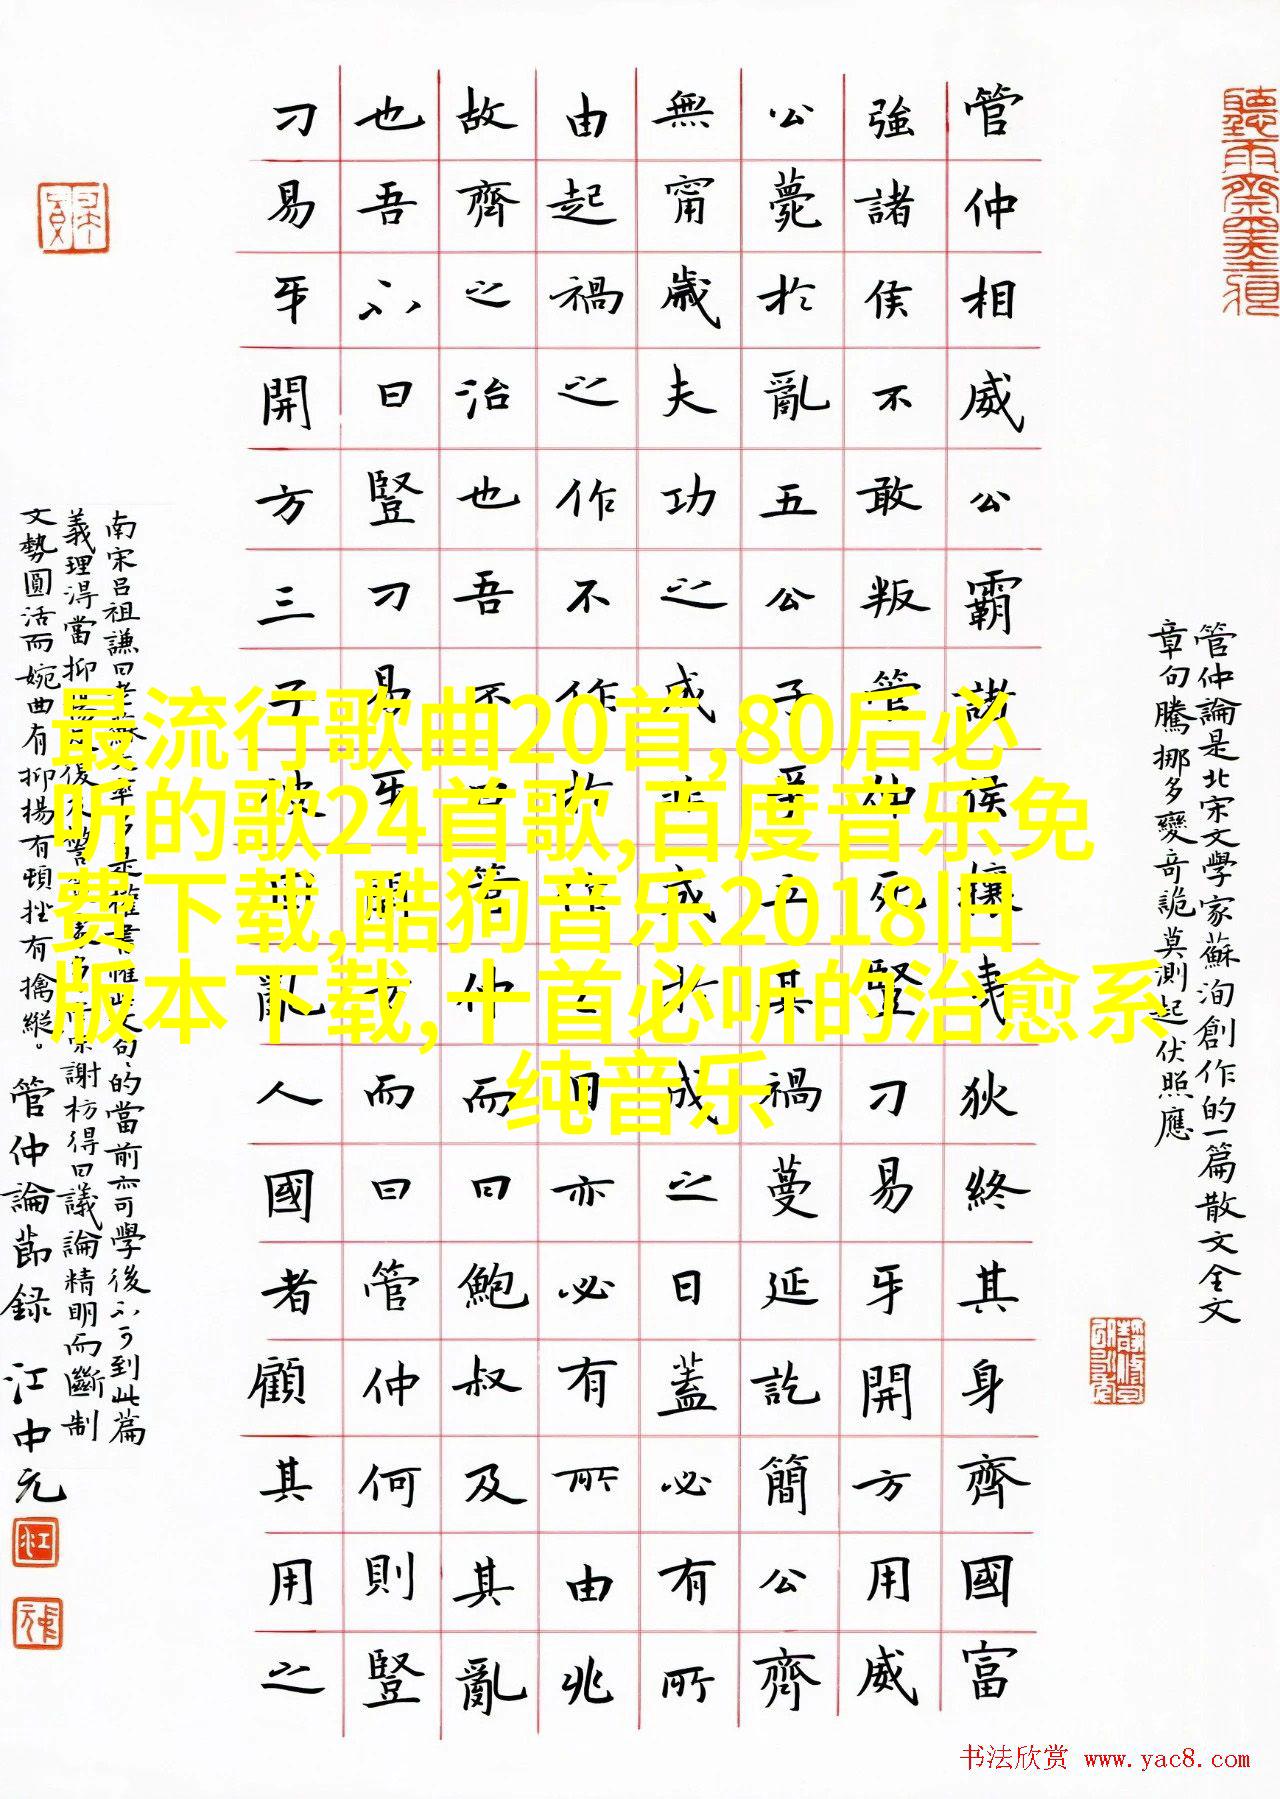 管仲論是北宋文學家蘇洵創作的一篇散文全文
章句騰挪多變奇詭莫測起伏照應
管仲相威公霸諸侯攘夷狄終其身齊國富
強諸侯不敢叛管仲死豎刁易牙開方用威
公薨於亂五公子爭立其禍蔓延訖簡公齊
無甯歲夫功之成非成於成之日蓋必有所
由起禍之作不作於作之日亦必有所由兆
故齊之治也吾不曰管仲而曰鮑叔及其亂
也吾不曰豎刁易牙開方而曰管仲何則豎
刁易牙開方三子彼固亂人國者顧其用之
南宋呂祖謙曰老蘇文率多是權書惟此文句句的當前亦可學後不可到此篇
義理淂當抑揚反復 謝枋得曰議論精明而斷制
文勢圓活而婉曲有抑揚有頓挫有擒縱。管仲論節録 江中元
最流行歌曲20首,80后必
听的歌24首歌,百度音乐免
费下载,酷狗音乐2018旧
版本下载,十首必听的治愈系
纯音乐
书法欣赏 www.yac8.com